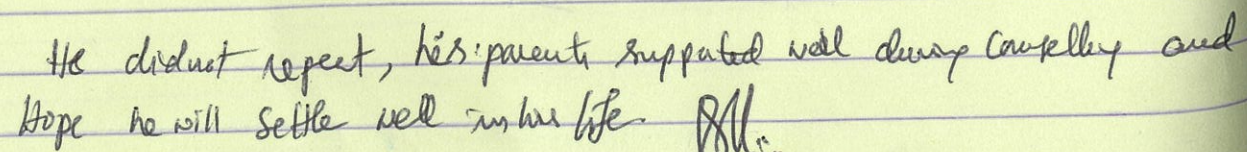 He didnot repeat, his parents suppated well during Counselling and
Hope he will settle well in his life.